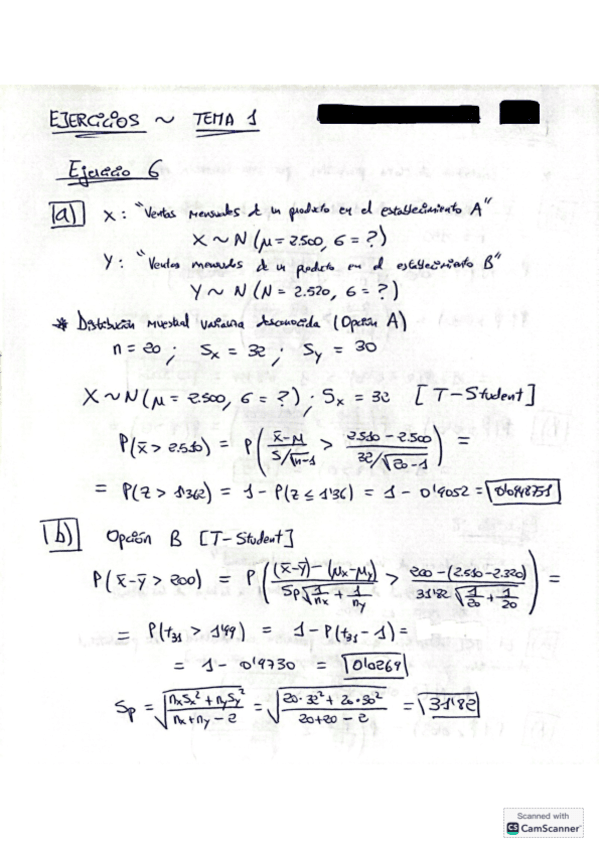 EJERCICIOS ~ TEMA 1
Ejercicio 6
a) X: "Ventas mensuales de un producto en el establecimiento A"
X ~ N (μ = 2.500, σ = ?)
Y: "Ventas mensuales de un producto en el establecimiento B"
Y ~ N (N = 2.520, σ = ?)
* Distribución muestral varianza desconocida (Opción A)
n = 20 ; Sx = 32 ; Sy = 30
X ~ N (μ = 2.500, σ = ?) ; Sx = 32 [T-Student]
P(x̄ > 2.510) = P( (x̄-μ)/(S/√n-1) > (2.510 - 2.500)/(32/√20-1) ) =
= P(Z > 1'362) = 1 - P(Z ≤ 1'36) = 1 - 0'9052 = 0'0948751
b) Opción B [T-Student]
P(x̄-ȳ > 200) = P( ((x̄-ȳ)-(μx-μy))/(Sp√(1/nx + 1/ny)) > (200-(2.510-2.320))/(31'82 √(1/20 + 1/20)) ) =
= P(t31 > 1'99) = 1 - P(t31 - 1) =
= 1 - 0'9730 = 0'0269
Sp = √((nxSx² + nySy²)/(nx + ny - 2)) = √((20·32² + 20·30²)/(20+20-2)) = 31'82
Scanned with
CS CamScanner